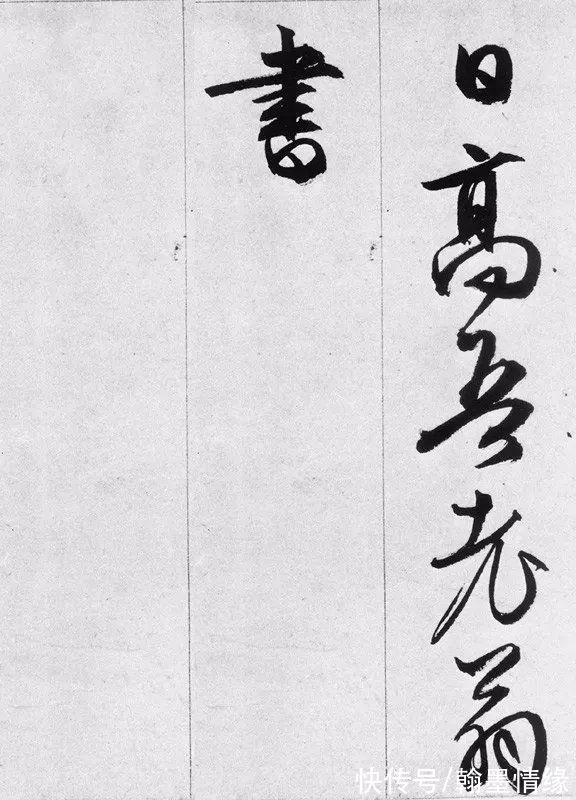 日高吾老翁
書
快传号/翰墨情缘